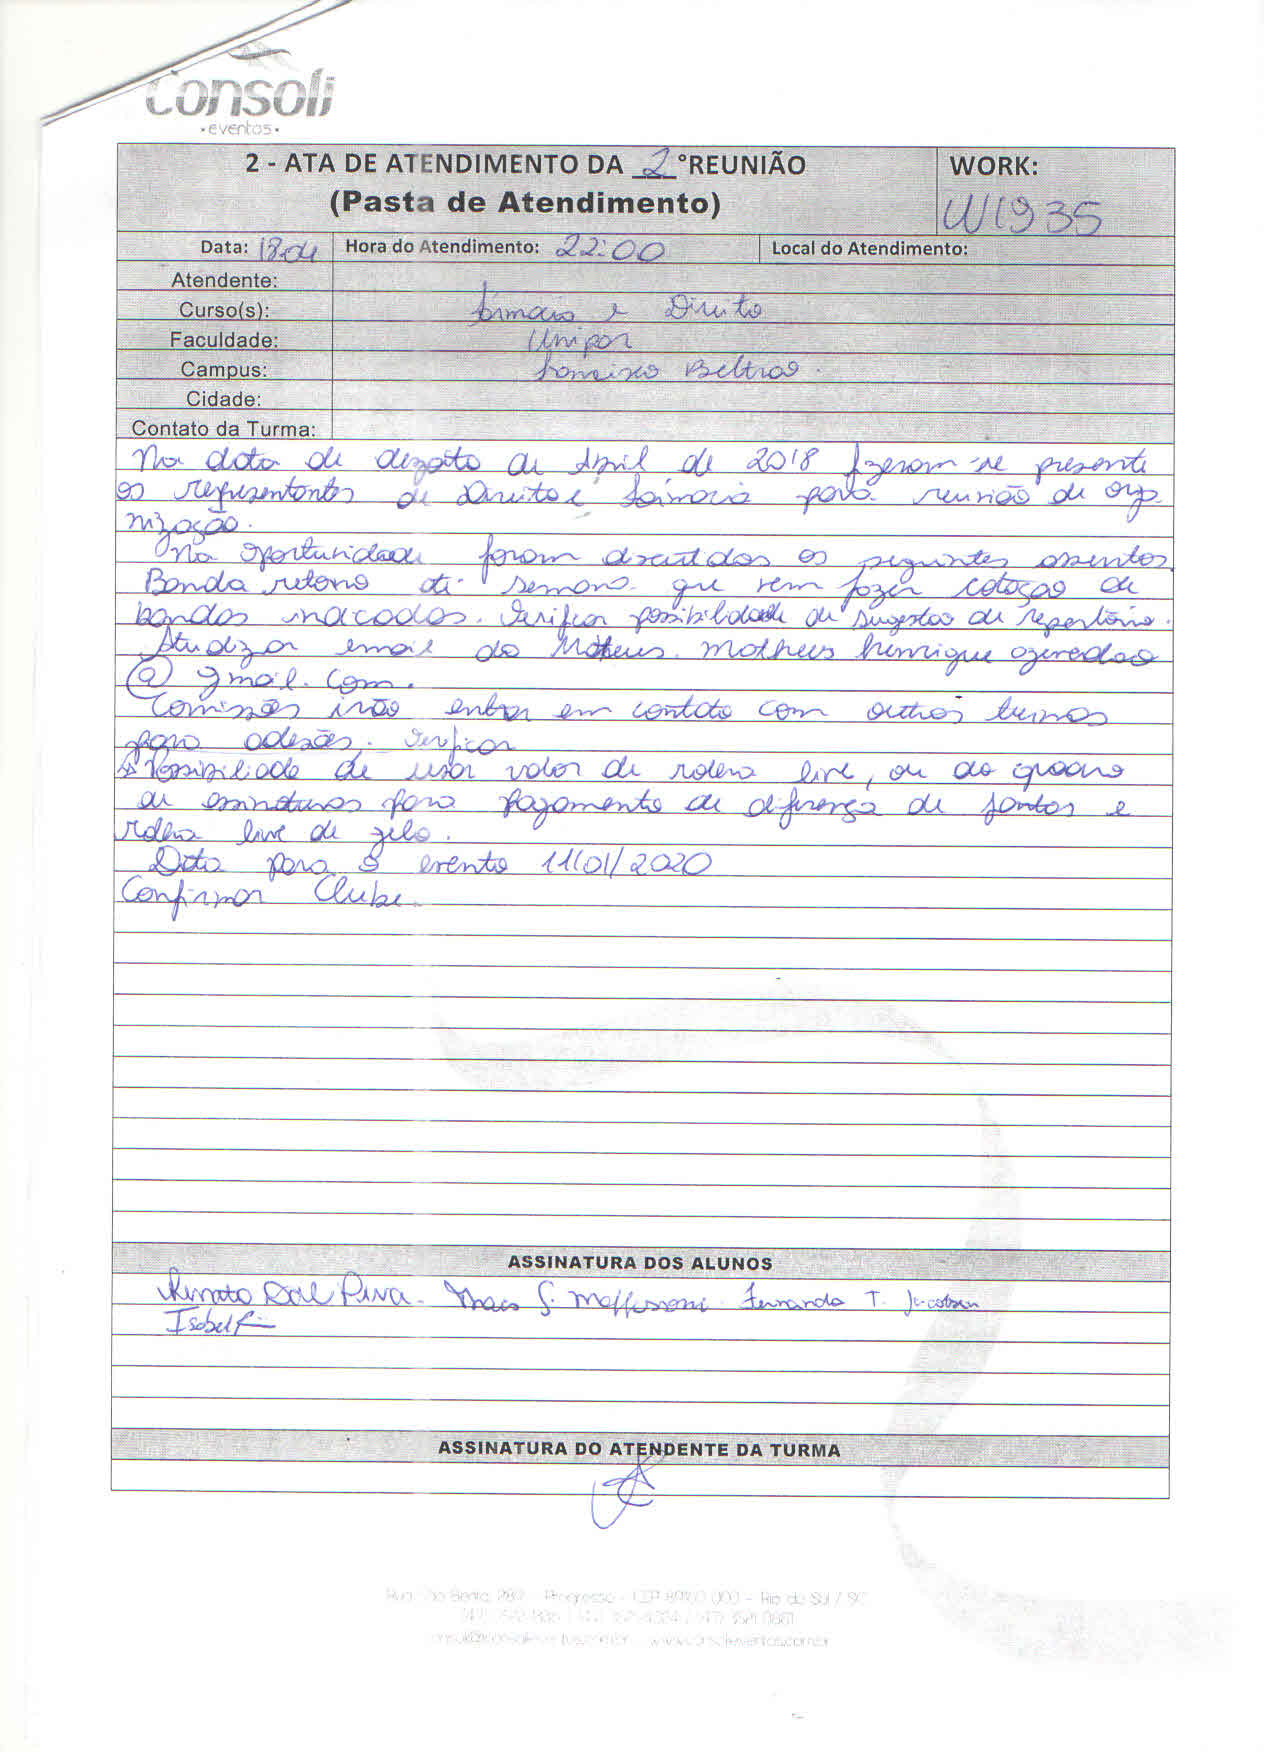 Consoli
•eventos•
2 - ATA DE ATENDIMENTO DA 2 °REUNIÃO
(Pasta de Atendimento)
WORK:
W1935
Data: 18.04 Hora do Atendimento: 22:00 Local do Atendimento:
Atendente:
Curso(s): Farmácia e Direito
Faculdade: Unipar
Campus: Francisco Beltrão.
Cidade:
Contato da Turma:
Na data de dezoito de Abril de 2018 fizeram-se presente
os representantes de Direito e Farmácia para reunião de orga
nização.
Na oportunidade foram discutidos os seguintes assuntos
Banda retorno até semana que vem fazer cotação de
bandas indicadas. Verificar possibilidade de sugestão de repertório.
Atualizar email do Matheus. matheus henrique azeredo
@gmail.com.
Comissões irão entrar em contato com outros turmas
para adesões. Verificar
Possibiliade de usar valor de roleta live, ou do quadro
de assinaturas para pagamento de diferença de jantas e
live de gelo.
Data para o evento 11/01/2020
Confirmar Clube.
ASSINATURA DOS ALUNOS
Renato Dal Piva. Thais G. Maffissoni. Fernanda T. Jacobsen
Isabel
ASSINATURA DO ATENDENTE DA TURMA